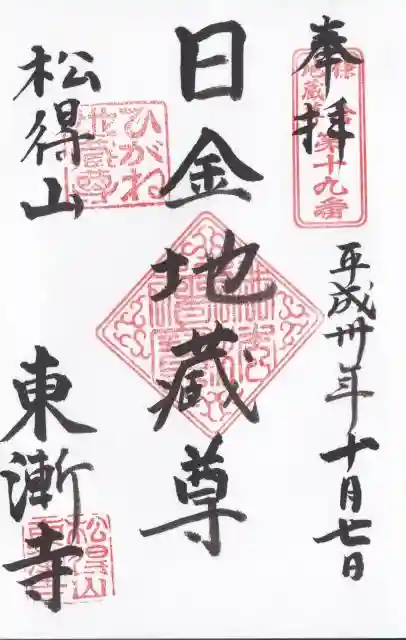 奉拝
第十九番
平成卅年十月七日
日金地蔵尊
松得山
ひがね
地蔵尊
東漸寺
松得山
東漸寺